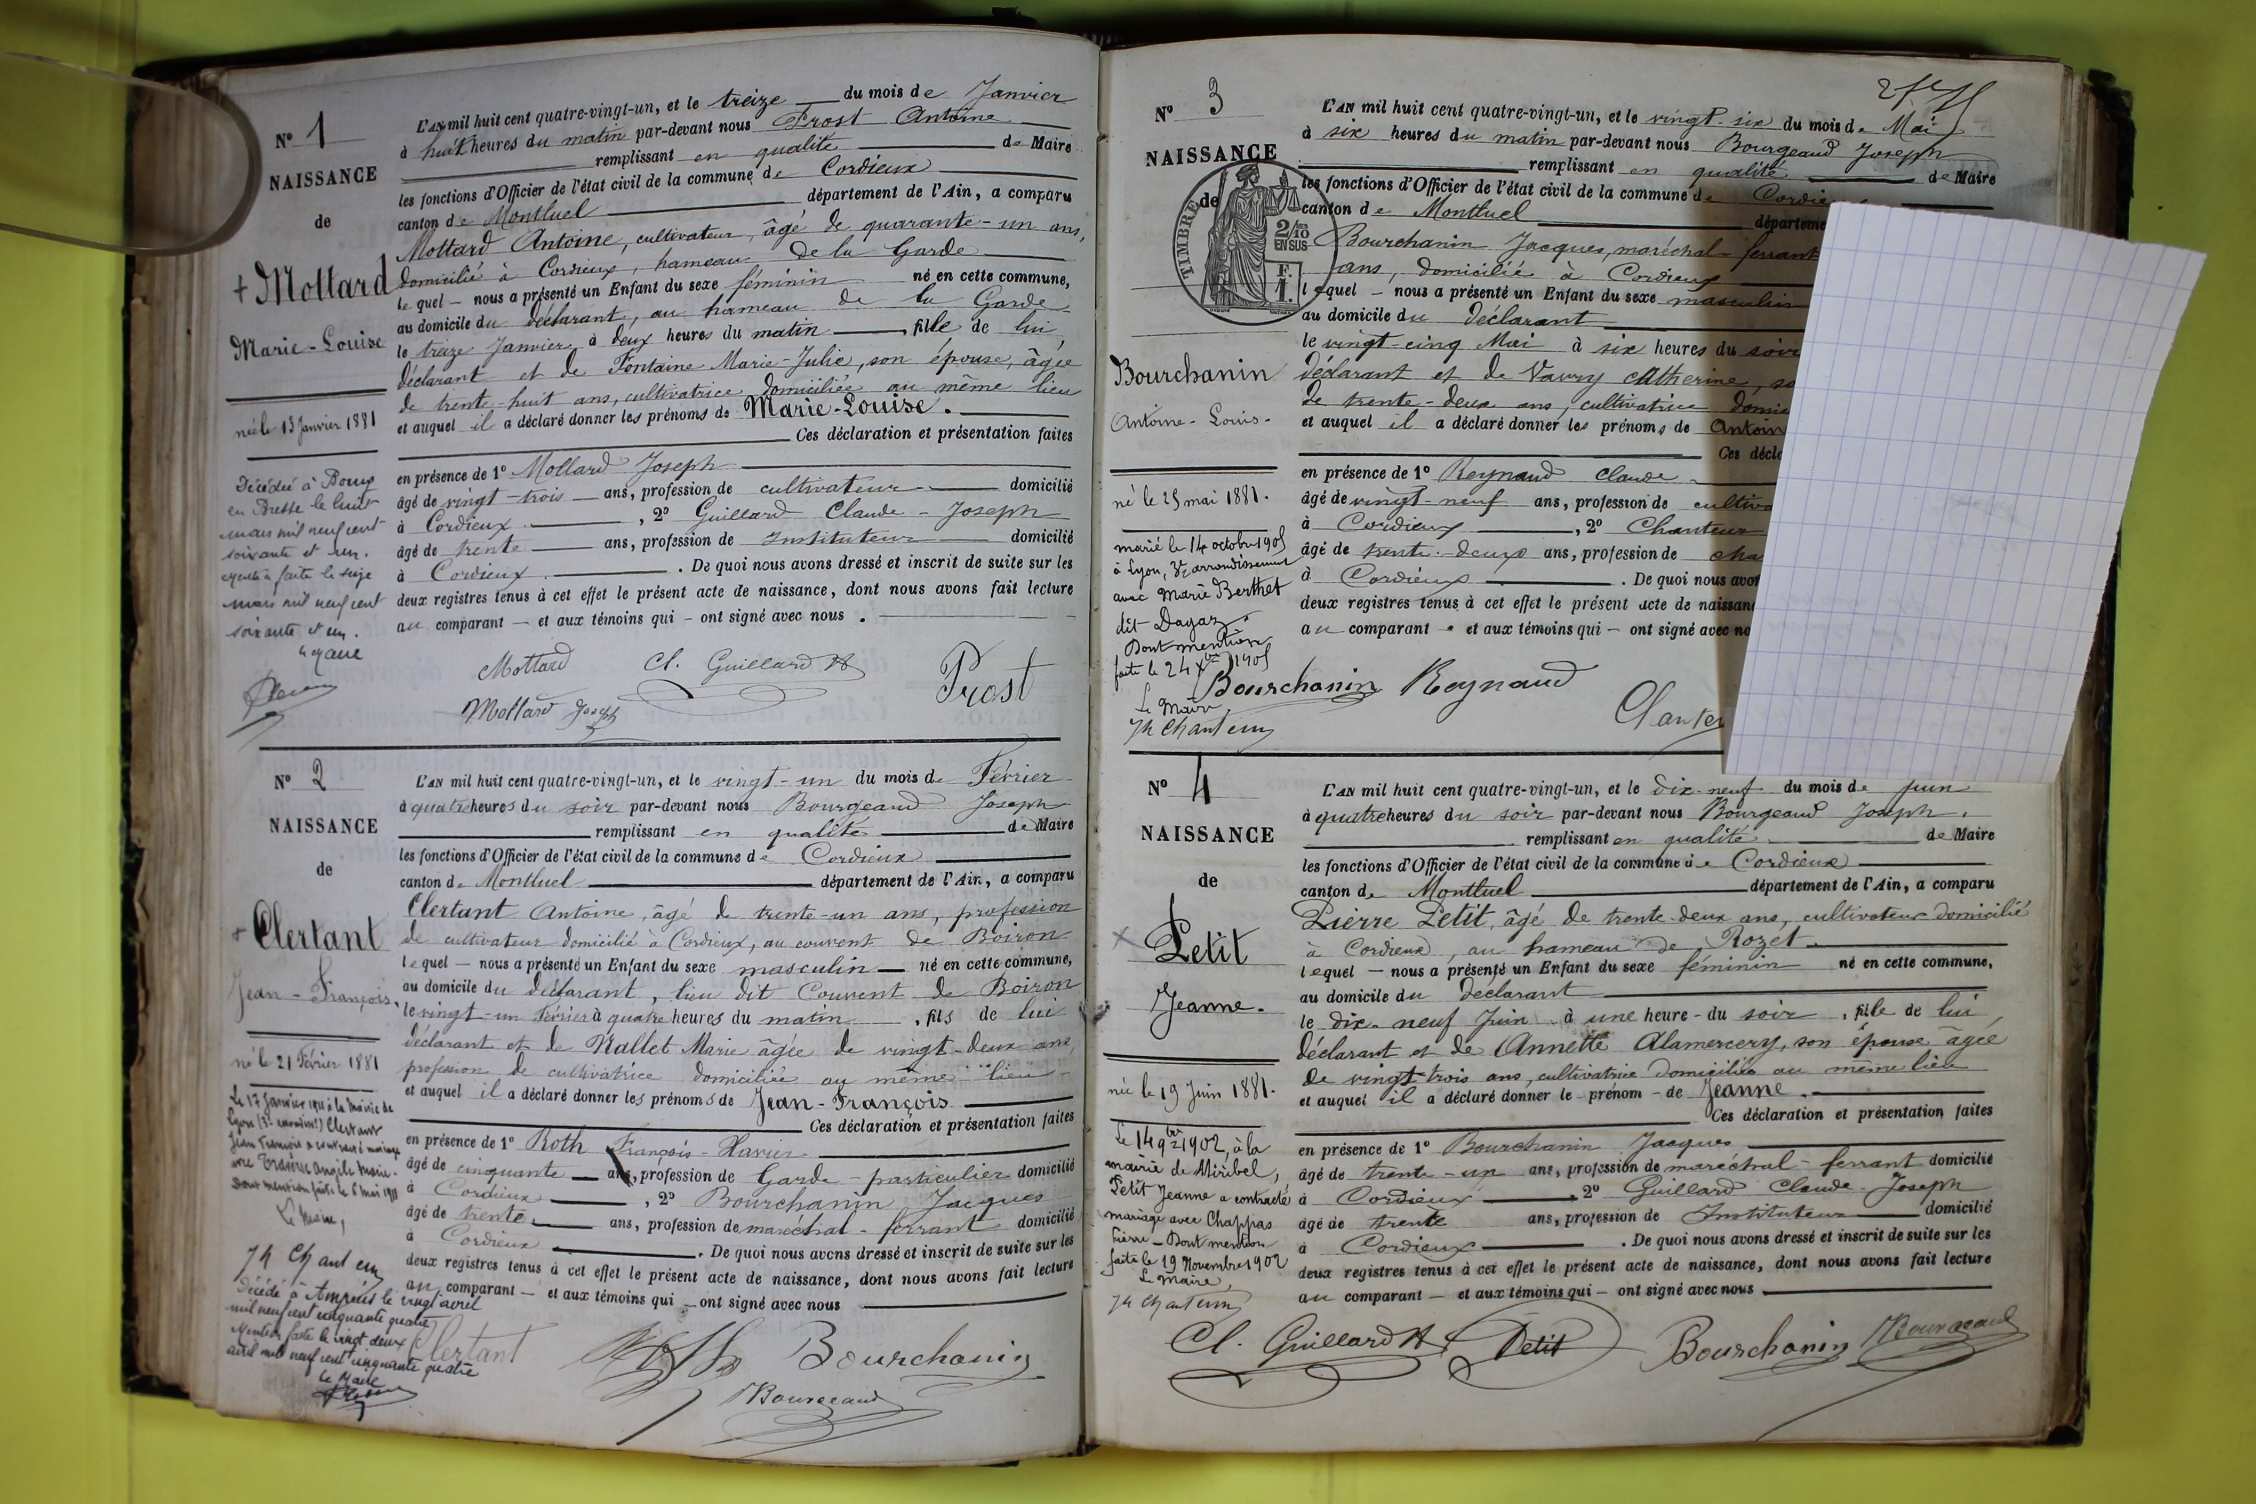 N° 1
NAISSANCE
de
+ Mottard
Marie-Louise
née le 13 Janvier 1881
Décédée à Bourg
en Bresse le huit
mars mil neuf cent
soixante et un.
Mention faite le seize
mars mil neuf cent
soixante et un.
Le Maire
L'AN mil huit cent quatre-vingt-un, et le treize du mois de Janvier
à huit heures du matin par-devant nous Prost Antoine
remplissant en qualité de Maire
les fonctions d'Officier de l'état civil de la commune de Cordieux
canton de Montluel département de l'Ain, a comparu
Mottard Antoine, cultivateur, âgé de quarante-un ans,
domicilié à Cordieux, hameau de la Garde
lequel — nous a présenté un Enfant du sexe féminin né en cette commune,
au domicile du déclarant, au hameau de la Garde
le treize Janvier à deux heures du matin, fille de lui
déclarant et de Fontaine Marie-Julie, son épouse, âgée
de trente-huit ans, cultivatrice domiciliée au même lieu
et auquel il a déclaré donner les prénoms de Marie-Louise.
Ces déclaration et présentation faites
en présence de 1° Mollard Joseph
âgé de vingt-trois ans, profession de cultivateur domicilié
à Cordieux, 2° Guillard Claude-Joseph
âgé de trente ans, profession de Instituteur domicilié
à Cordieux. De quoi nous avons dressé et inscrit de suite sur les
deux registres tenus à cet effet le présent acte de naissance, dont nous avons fait lecture
au comparant — et aux témoins qui — ont signé avec nous.
Mottard Cl. Guillard Prost
Mottard Joseph
N° 2
NAISSANCE
de
+ Clertant
Jean-François,
né le 21 Février 1881
Le 17 Janvier 1911 à la Mairie de
Lyon Clertant
Jean François a contracté mariage
avec Angèle Marie.
Dont mention faite le 6 Mai 1911
Le Maire,
Jh Chanteur
Décédé à Ampuis le vingt avril
mil neuf cent cinquante quatre
Mention faite le vingt deux
avril mil neuf cent cinquante quatre
Le Maire
L'AN mil huit cent quatre-vingt-un, et le vingt-un du mois de Février
à quatre heures du soir par-devant nous Bourgeaud Joseph
remplissant en qualité de Maire
les fonctions d'Officier de l'état civil de la commune de Cordieux
canton de Montluel département de l'Ain, a comparu
Clertant Antoine, âgé de trente-un ans, profession
de cultivateur domicilié à Cordieux, au couvent de Boiron
lequel — nous a présenté un Enfant du sexe masculin né en cette commune,
au domicile du déclarant, lieu dit Couvent de Boiron
le vingt-un Février à quatre heures du matin, fils de lui
déclarant et de Nallet Marie âgée de vingt-deux ans,
profession de cultivatrice domiciliée au même lieu
et auquel il a déclaré donner les prénoms de Jean-François
Ces déclaration et présentation faites
en présence de 1° Roth François-Xavier
âgé de cinquante ans, profession de Garde-particulier domicilié
à Cordieux, 2° Bourchanin Jacques
âgé de trente ans, profession de maréchal-ferrant domicilié
à Cordieux. De quoi nous avons dressé et inscrit de suite sur les
deux registres tenus à cet effet le présent acte de naissance, dont nous avons fait lecture
au comparant — et aux témoins qui — ont signé avec nous
Clertant Roth Bourchanin
Bourgeaud
N° 3
NAISSANCE
de
TIMBRE
2/10
EN SUS
F.
1.
Bourchanin
Antoine-Louis-
né le 25 mai 1881.
marié le 14 octobre 1905
à Lyon, 3e arrondissement
avec Marie Berthet
dit Dagaz.
Dont mention
faite le 24 Xbre 1905
Le Maire
Jh Chanteur
L'AN mil huit cent quatre-vingt-un, et le vingt-six du mois de Mai
à six heures du matin par-devant nous Bourgeaud Joseph
remplissant en qualité de Maire
les fonctions d'Officier de l'état civil de la commune de Cordie
canton de Montluel départeme
Bourchanin Jacques, maréchal-ferrant
ans, domicilié à Cordieux
lequel — nous a présenté un Enfant du sexe masculin
au domicile du déclarant
le vingt-cinq Mai à six heures du soir
déclarant et de Vavry Catherine, so
de trente-deux ans, cultivatrice domic
et auquel il a déclaré donner les prénoms de Antoin
Ces décla
en présence de 1° Reynaud Claude
âgé de vingt-neuf ans, profession de cultiva
à Cordieux, 2° Chanteur
âgé de trente-deux ans, profession de cha
à Cordieux. De quoi nous avon
deux registres tenus à cet effet le présent acte de naissan
au comparant et aux témoins qui — ont signé avec no
Bourchanin Reynaud
Chanteu
N° 4
NAISSANCE
de
Petit
Jeanne.
née le 19 Juin 1881.
Le 14 9bre 1902, à la
mairie de Miribel,
Petit Jeanne a contracté
mariage avec Chappas
Pierre — Dont mention
faite le 19 Novembre 1902
Le Maire,
Jh Chanteur
L'AN mil huit cent quatre-vingt-un, et le dix-neuf du mois de Juin
à quatre heures du soir par-devant nous Bourgeaud Joseph.
remplissant en qualité de Maire
les fonctions d'Officier de l'état civil de la commune de Cordieux
canton de Montluel département de l'Ain, a comparu
Pierre Petit, âgé de trente-deux ans, cultivateur domicilié
à Cordieux, au hameau de Rozet
lequel — nous a présenté un Enfant du sexe féminin né en cette commune,
au domicile du déclarant
le dix-neuf Juin à une heure du soir, fille de lui,
déclarant et de Annette Alamercery, son épouse âgée
de vingt-trois ans, cultivatrice domiciliée au même lieu
et auquel il a déclaré donner le prénom de Jeanne.
Ces déclaration et présentation faites
en présence de 1° Bourchanin Jacques
âgé de trente-un ans, profession de maréchal-ferrant domicilié
à Cordieux, 2° Guillard Claude-Joseph
âgé de trente ans, profession de Instituteur domicilié
à Cordieux. De quoi nous avons dressé et inscrit de suite sur les
deux registres tenus à cet effet le présent acte de naissance, dont nous avons fait lecture
au comparant — et aux témoins qui — ont signé avec nous
Cl. Guillard Petit Bourchanin Bourgeaud